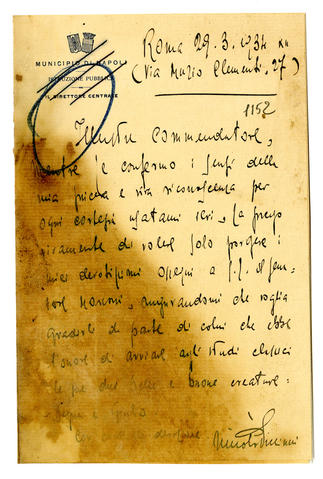 MUNICIPIO DI NAPOLI
ISTRUZIONE PUBBLICA
IL DIRETTORE CENTRALE
Roma 29.3.1934 XII
(Via Muzio Clementi, 27)
1152
Illustre Commendatore,
mentre Le confermo i sensi della
mia sincera e viva riconoscenza per
ogni cortesia usatami ieri, La prego
vivamente di voler solo porgere i
miei devotissimi ossequi a S.E. il Sena-
tore, augurandomi che voglia
gradirli da parte di colui che ebbe
l'onore di avviare agli studi classici
le sue due belle e buone creature.